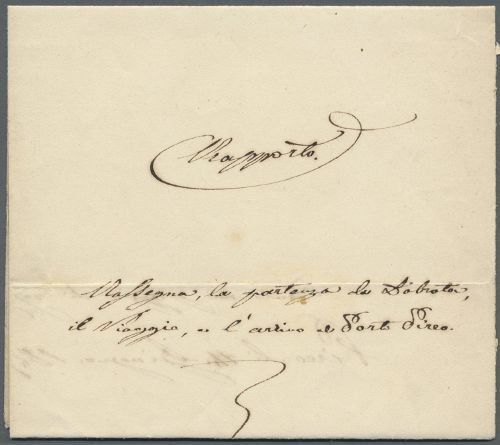 Rapporto.
Rassegna, la partenza da Dobrota,
il Viaggio, e l'arrivo al Porto Pireo.